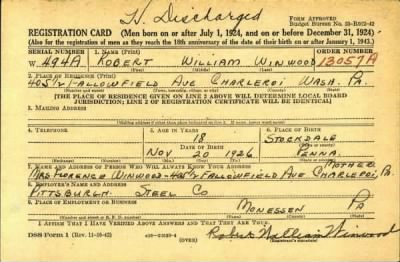 H. Discharged
FORM APPROVED
Budget Bureau No. 33-R072-42
REGISTRATION CARD (Men born on or after July 1, 1924, and on or before December 31, 1924)
(Also for the registration of men as they reach the 18th anniversary of the date of their birth on or after January 1, 1943.)
SERIAL NUMBER 1. NAME (Print) ORDER NUMBER
W 494A ROBERT WILLIAM WINWOOD 13057A
(First) (Middle) (Last)
2. PLACE OF RESIDENCE (Print)
405½ FALLOWFIELD AVE CHARLEROI WASH. PA.
(Number and street) (Town, township, village, or city) (County) (State)
[THE PLACE OF RESIDENCE GIVEN ON LINE 2 ABOVE WILL DETERMINE LOCAL BOARD
JURISDICTION; LINE 2 OF REGISTRATION CERTIFICATE WILL BE IDENTICAL]
3. MAILING ADDRESS
4. TELEPHONE 5. AGE IN YEARS 6. PLACE OF BIRTH
18 STOCKDALE
DATE OF BIRTH
NOV 20 1926 PENNA.
7. NAME AND ADDRESS OF PERSON WHO WILL ALWAYS KNOW YOUR ADDRESS MOTHER
MRS. FLORENCE WINWOOD-405½ FALLOWFIELD AVE CHARLEROI, PA.
8. EMPLOYER'S NAME AND ADDRESS
PITTSBURGH STEEL CO
9. PLACE OF EMPLOYMENT OR BUSINESS
MONESSEN PA
I AFFIRM THAT I HAVE VERIFIED ABOVE ANSWERS AND THAT THEY ARE TRUE.
DSS Form 1 (OVER) Robert William Winwood
(Registrant's signature)